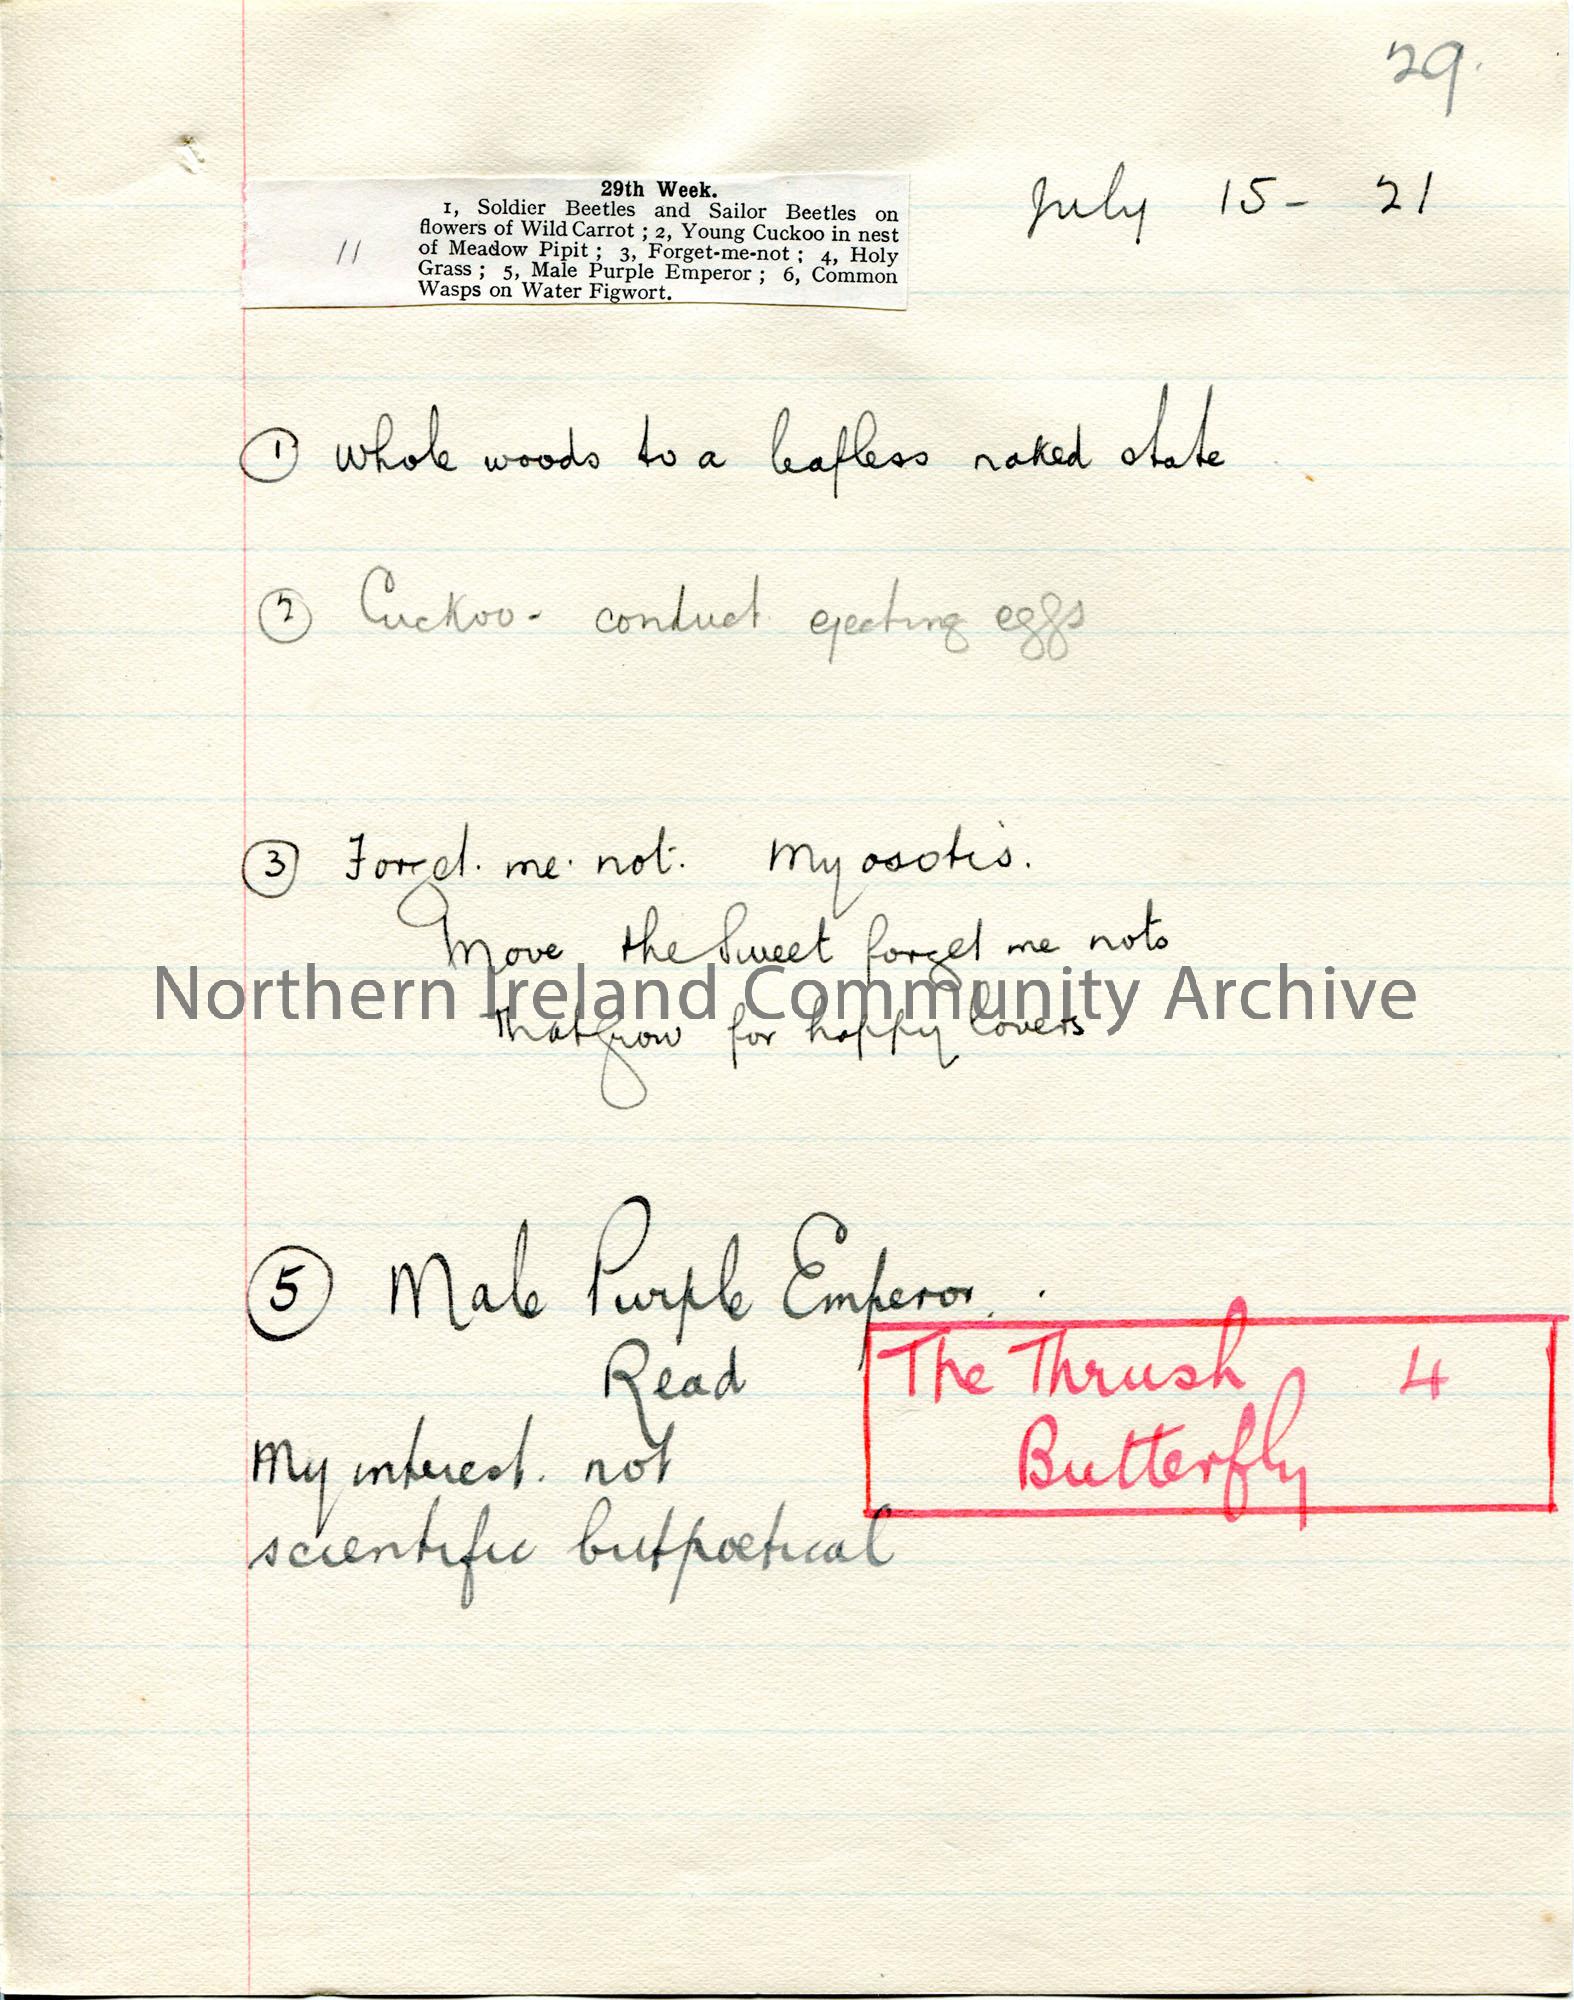 29.
July 15 - 21
29th Week.
1, Soldier Beetles and Sailor Beetles on
flowers of Wild Carrot ; 2, Young Cuckoo in nest
of Meadow Pipit ; 3, Forget-me-not ; 4, Holy
Grass ; 5, Male Purple Emperor ; 6, Common
Wasps on Water Figwort.
11
① Whole woods to a leafless naked state
② Cuckoo - conduct ejecting eggs
③ Forget. me. not. Myosotis.
Move the Sweet forget me nots
Northern Ireland Community Archive
that grow for happy lovers
⑤ Male Purple Emperor.
Read
The Thrush 4
Butterfly
My interest. not
scientific but poetical